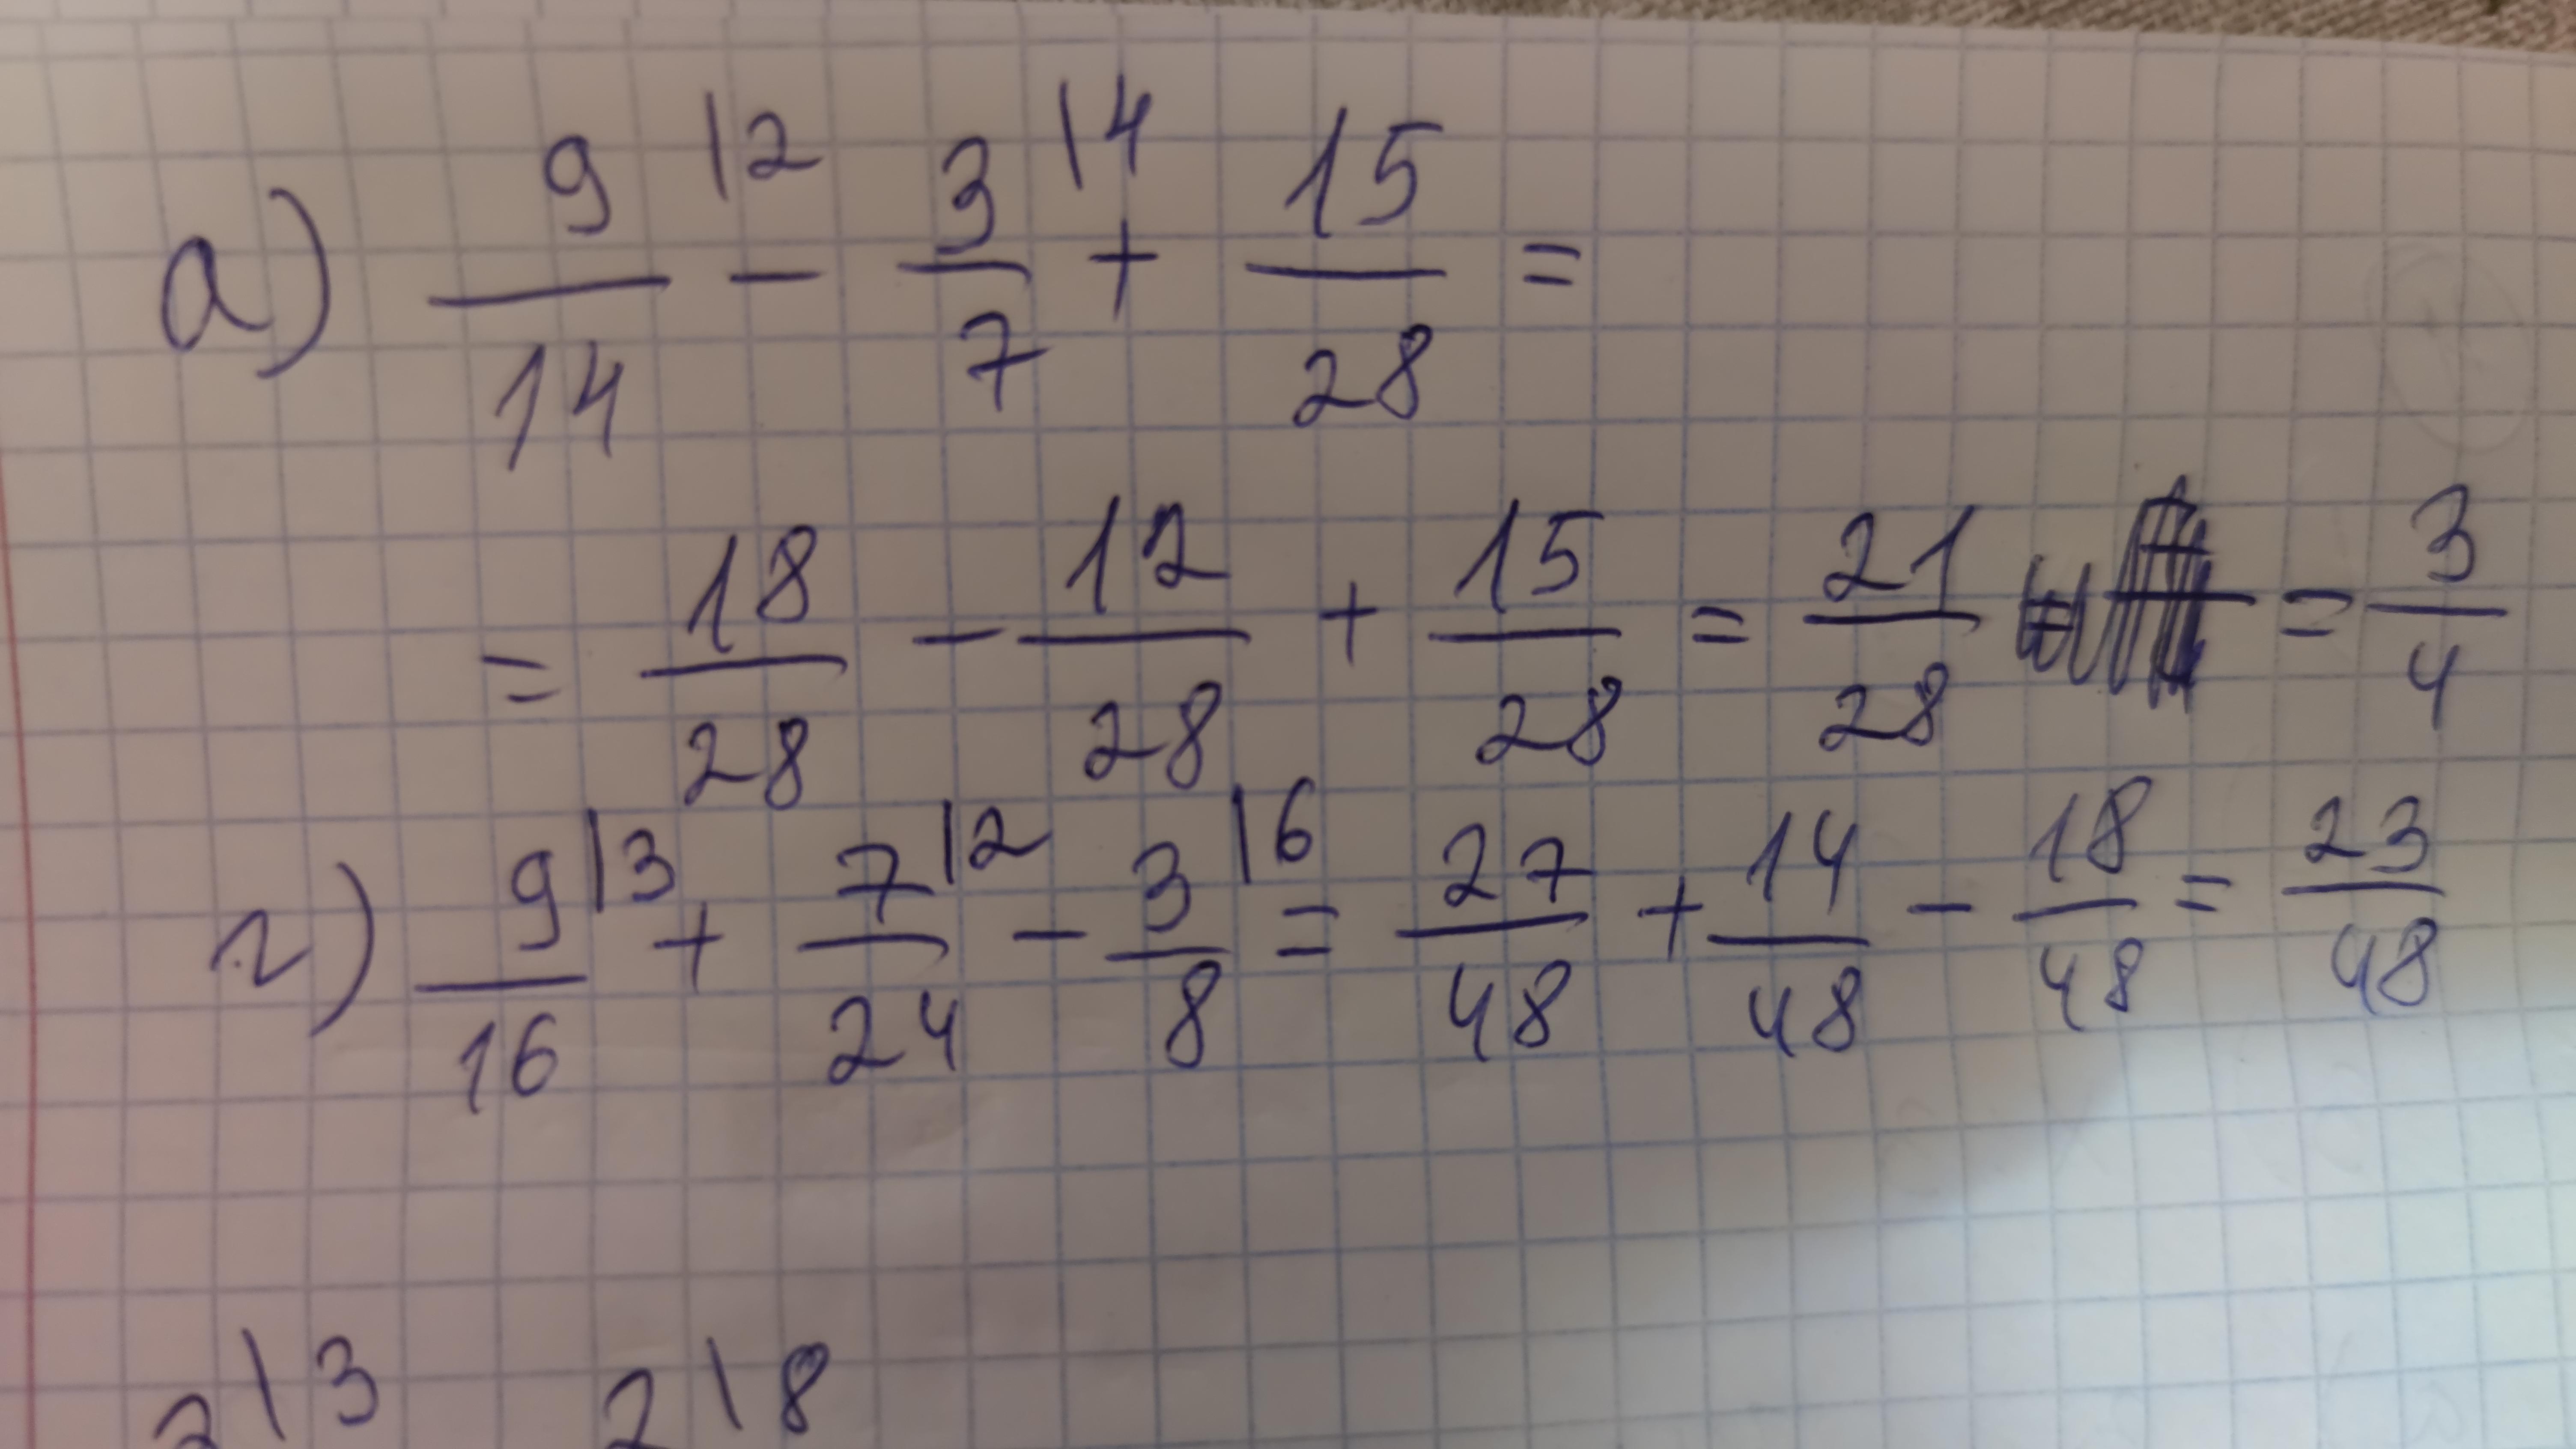 а) 9/14 |2 - 3/7 |4 + 15/28 =
= 18/28 - 12/28 + 15/28 = 21/28 = 3/4
г) 9/16 |3 + 7/24 |2 - 3/8 |6 = 27/48 + 14/48 - 18/48 = 23/48
\3 \8